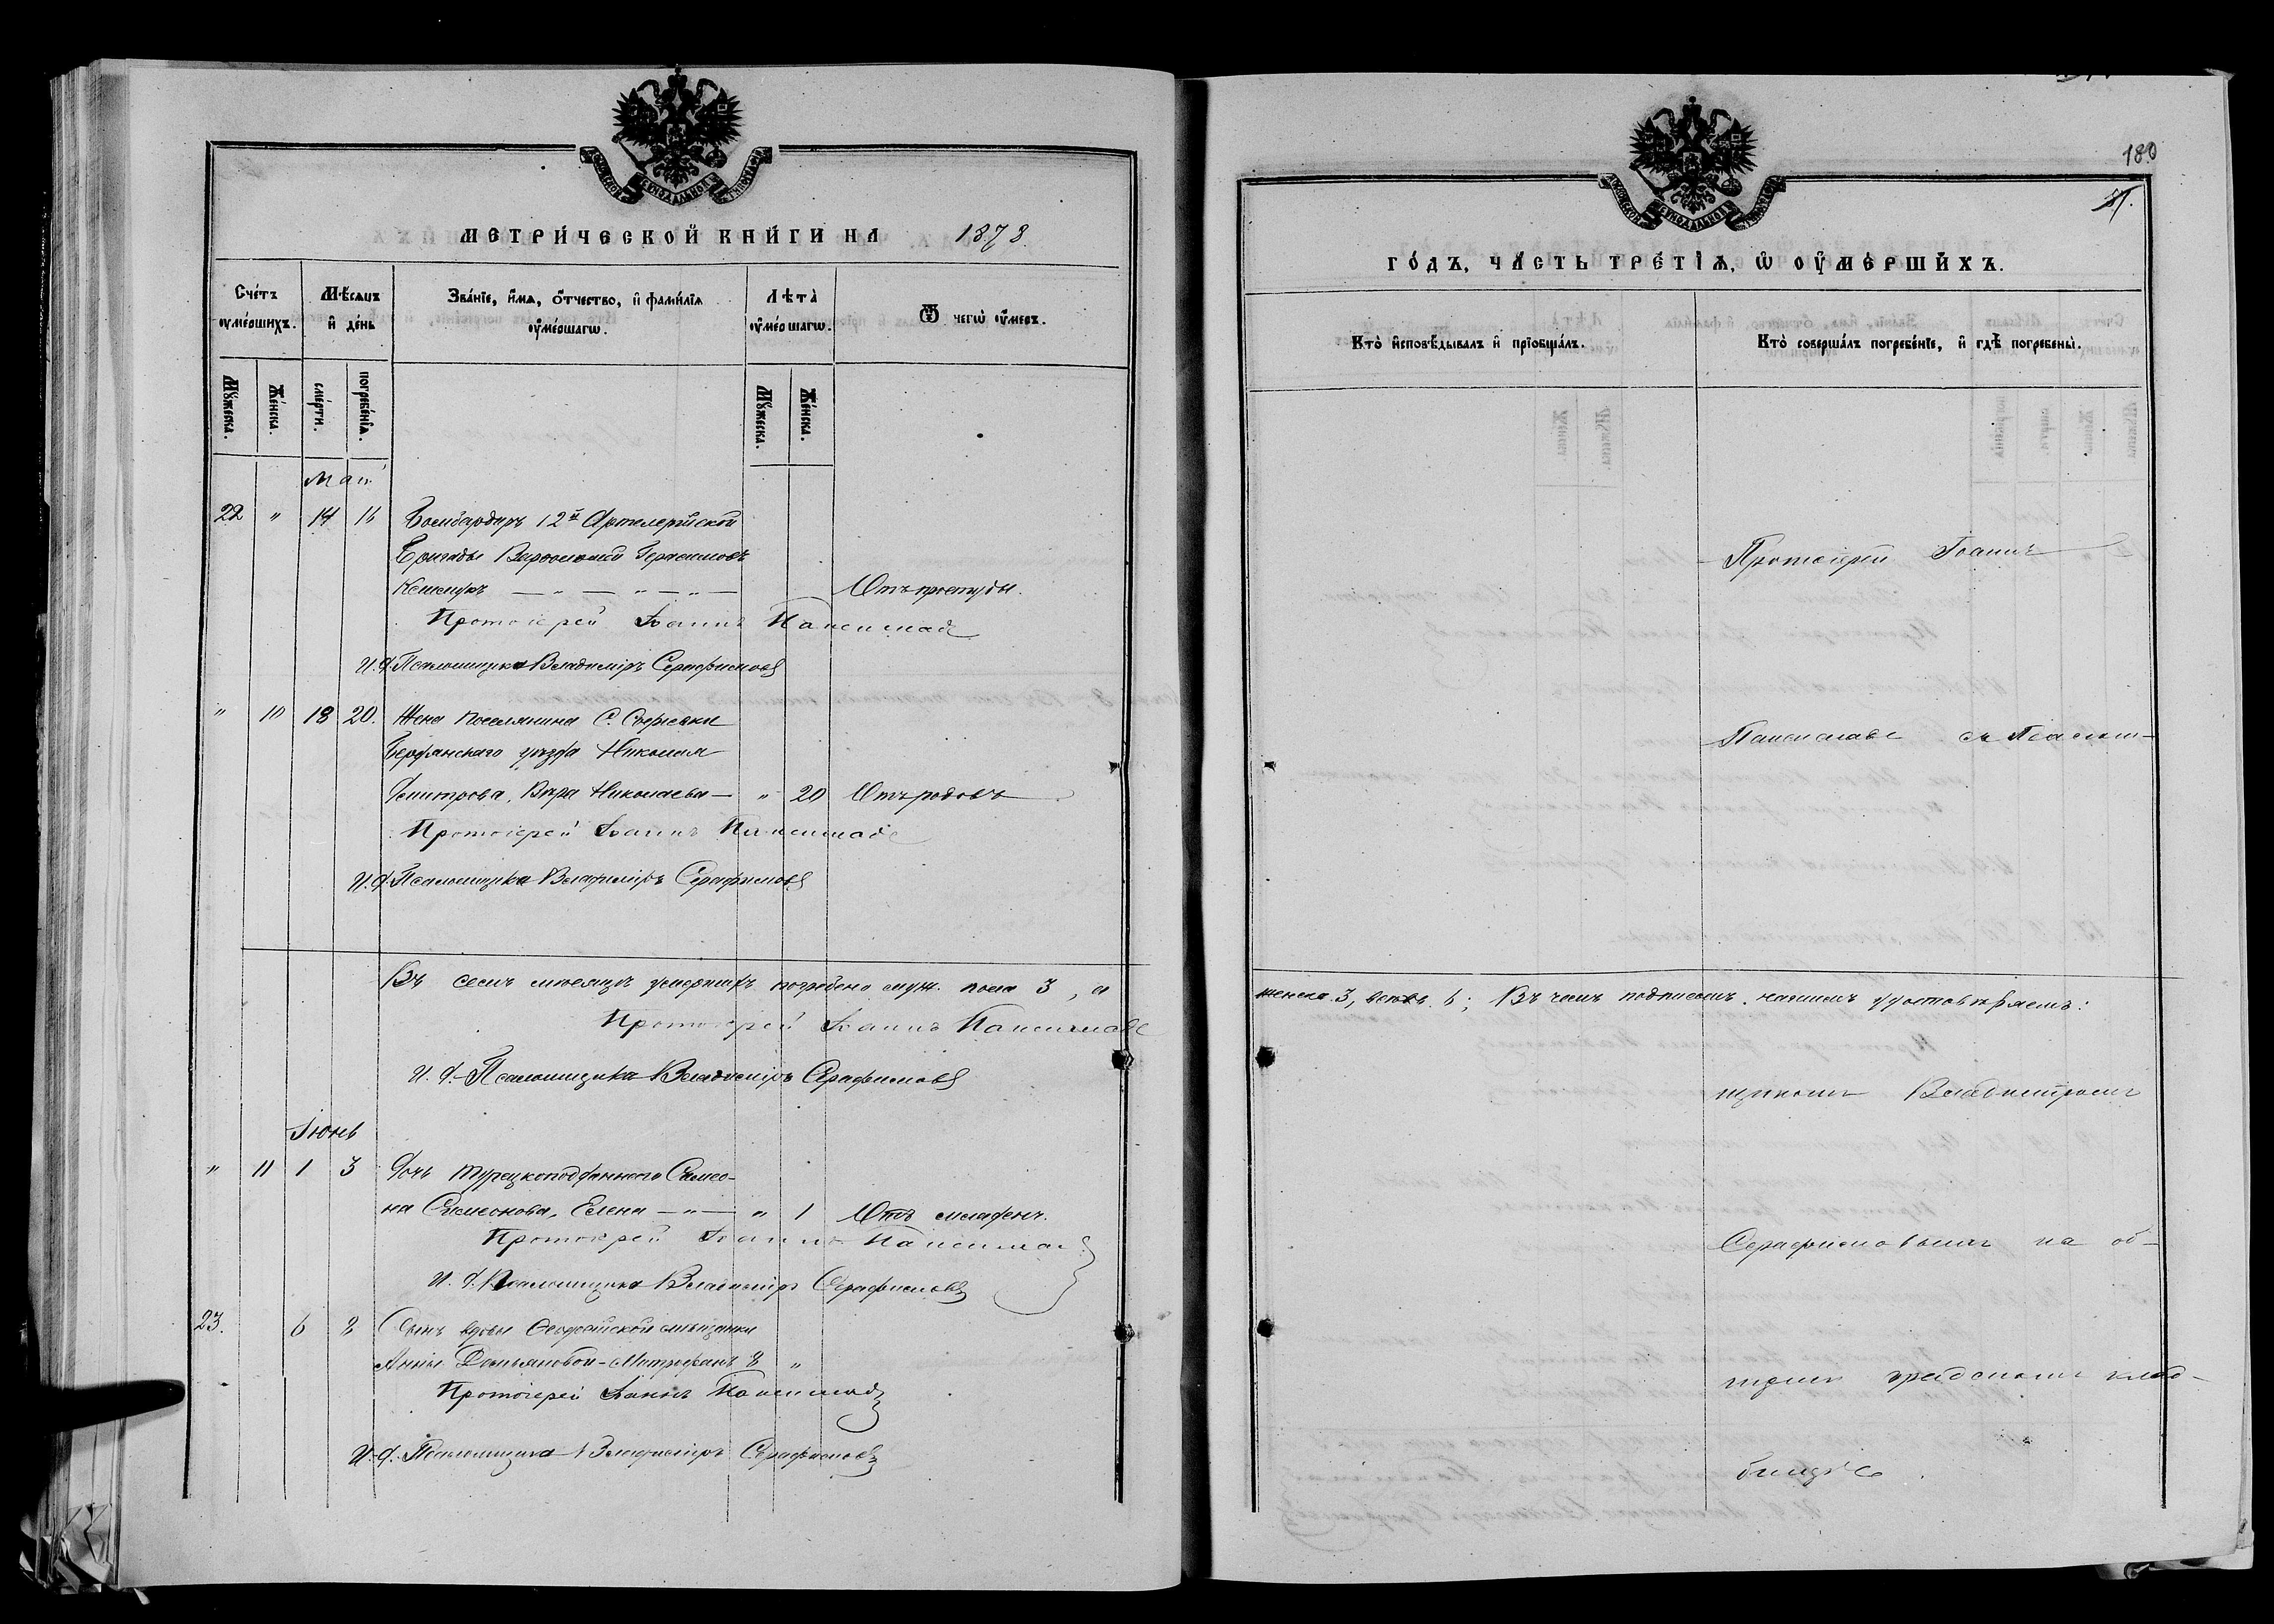 МЕТРИ́ЧЕСКОЙ КНИ́ГИ НА 1878.
Сче́тъ оуме́ршихъ.
Мѣ́сяцъ и҆ де́нь
Зва́нїе, и҆́мя, ѻ҆́тчество, и҆ фами́лїя оуме́ршагѡ.
Лѣта̀ оуме́ршагѡ.
Ѿ чегѡ̀ оу́меръ.
Мꙋ́жеска.
Же́нска.
сме́рти.
погребе́нїя.
Мꙋ́жеска.
Же́нска.
Май
22 " 14 16 Бомбардиръ 12й Артилерійской
Бригады Варфоломей Герасимовъ
— " — " — " — Отъ простуды.
Протоіерей Іоаннъ
И. д. Псаломщика Владиміръ Серафимовъ
" 10 18 20. Жена поселянина С.
Бердянскаго уѣзда Николая
Димитрова, Вѣра Николаева — " 20 Отъ родовъ
Протоіерей Іоаннъ
И. д. Псаломщика Владиміръ Серафимовъ
Въ семъ мѣсяцѣ умершихъ погребено муж. пола 3, а
Протоіерей Іоаннъ
И. д. Псаломщика Владиміръ Серафимовъ
Іюнь
" 11 1 3 Дочь турецкоподданнаго Симео-
на Симеонова, Елена — " — " 1 Отъ младенч.
Протоіерей Іоаннъ
И. д. Псаломщика Владиміръ Серафимовъ
23. 6 8 Сынъ вдовы Ѳеодосійской мѣщанки
Анны Демьяновой - Митрофанъ 8 "
Протоіерей Іоаннъ
И. д. Псаломщика Владиміръ Серафимовъ
180
ГО́ДЪ, ЧА́СТЬ ТРЕ́ТЇЯ, Ѡ ОУМЕ́РШИХЪ.
Кто̀ и҆сповѣ́дывалъ и҆ прїобща́лъ.
Кто̀ соверша́лъ погребе́нїе, и҆ гдѣ̀ погребены̀.
Протоіерей Іоаннъ
съ Псалом-
женска 3, всѣхъ 6; Въ чемъ подписомъ нашимъ удостовѣряемъ:
щикомъ Владиміромъ
Серафимовымъ на об-
щемъ градскомъ клад-
бищѣ.